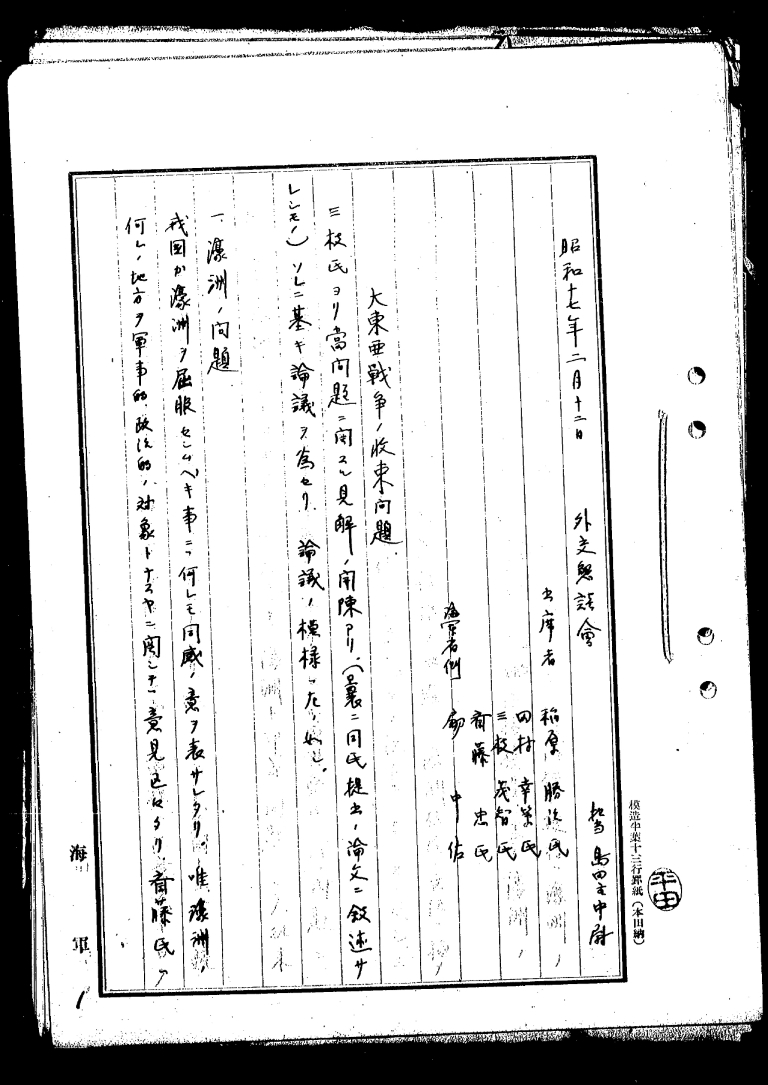 昭和十七年二月十二日　外交懇話會
担当　島田主中尉
出席者　稲原勝治氏
田村幸策氏
三枝茂智氏
斎藤忠氏
海軍省側　扇中佐
大東亜戦争ノ收束問題
三枝氏ヨリ當問題ニ関スル見解ノ開陳アリ、（曩ニ同氏提出ノ論文ニ叙述サ
レシモノ）ソレニ基キ論議ヲ為セリ　論議ノ模様左ノ如シ。
一、濠洲ノ問題
我国ガ濠洲ヲ屈服セシムベキ事ニハ何レモ同感ノ意ヲ表サレタリ。唯濠洲ノ
何レノ地方ヲ軍事的、政治的ノ対象トナスヤニ関シテハ意見区々タリ。斎藤氏ハ
海軍
1
模造半葉十三行罫紙（本田納）
平田